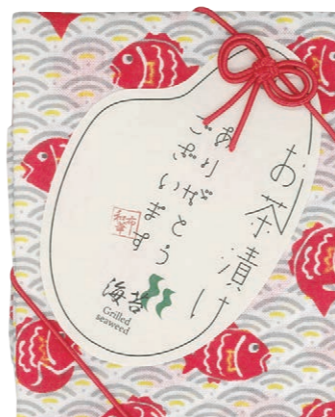 お茶漬け
ありがとう
ございます
海苔
Grilled
seaweed